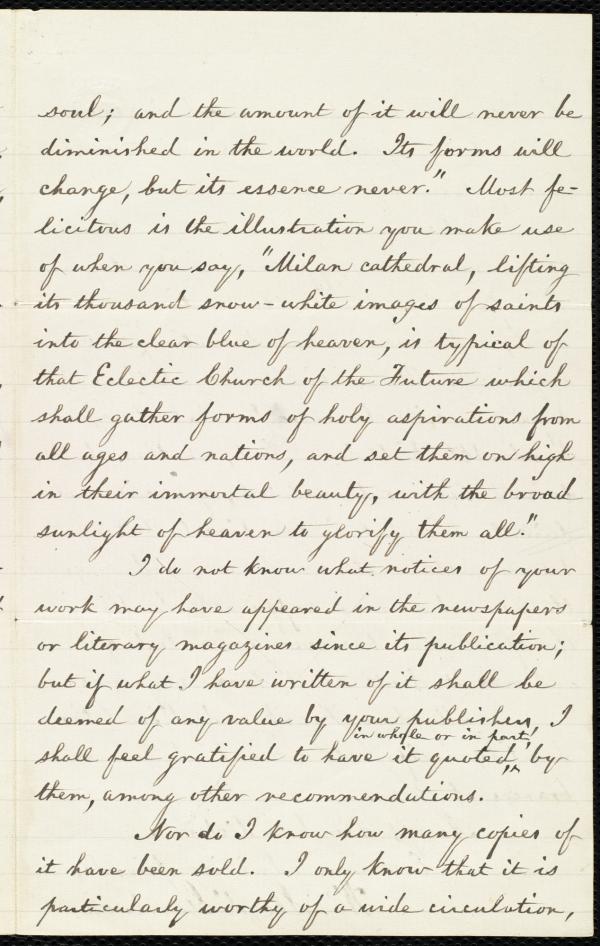 soul; and the amount of it will never be
diminished in the world. Its forms will
change, but its essence never." Most fe-
licitous is the illustration you make use
of when you say, "Milan cathedral, lifting
its thousand snow-white images of saints
into the clear blue of heaven, is typical of
that Eclectic Church of the Future which
shall gather forms of holy aspirations from
all ages and nations, and set them on high
in their immortal beauty, with the broad
sunlight of heaven to glorify them all."
I do not know what notices of your
work may have appeared in the newspapers
or literary magazines since its publication;
but if what I have written of it shall be
deemed of any value by your publishers, I
in whole or in part,
shall feel gratified to have it quoted, ^ by
them, among other recommendations.
Nor do I know how many copies of
it have been sold. I only know that it is
particularly worthy of a wide circulation,